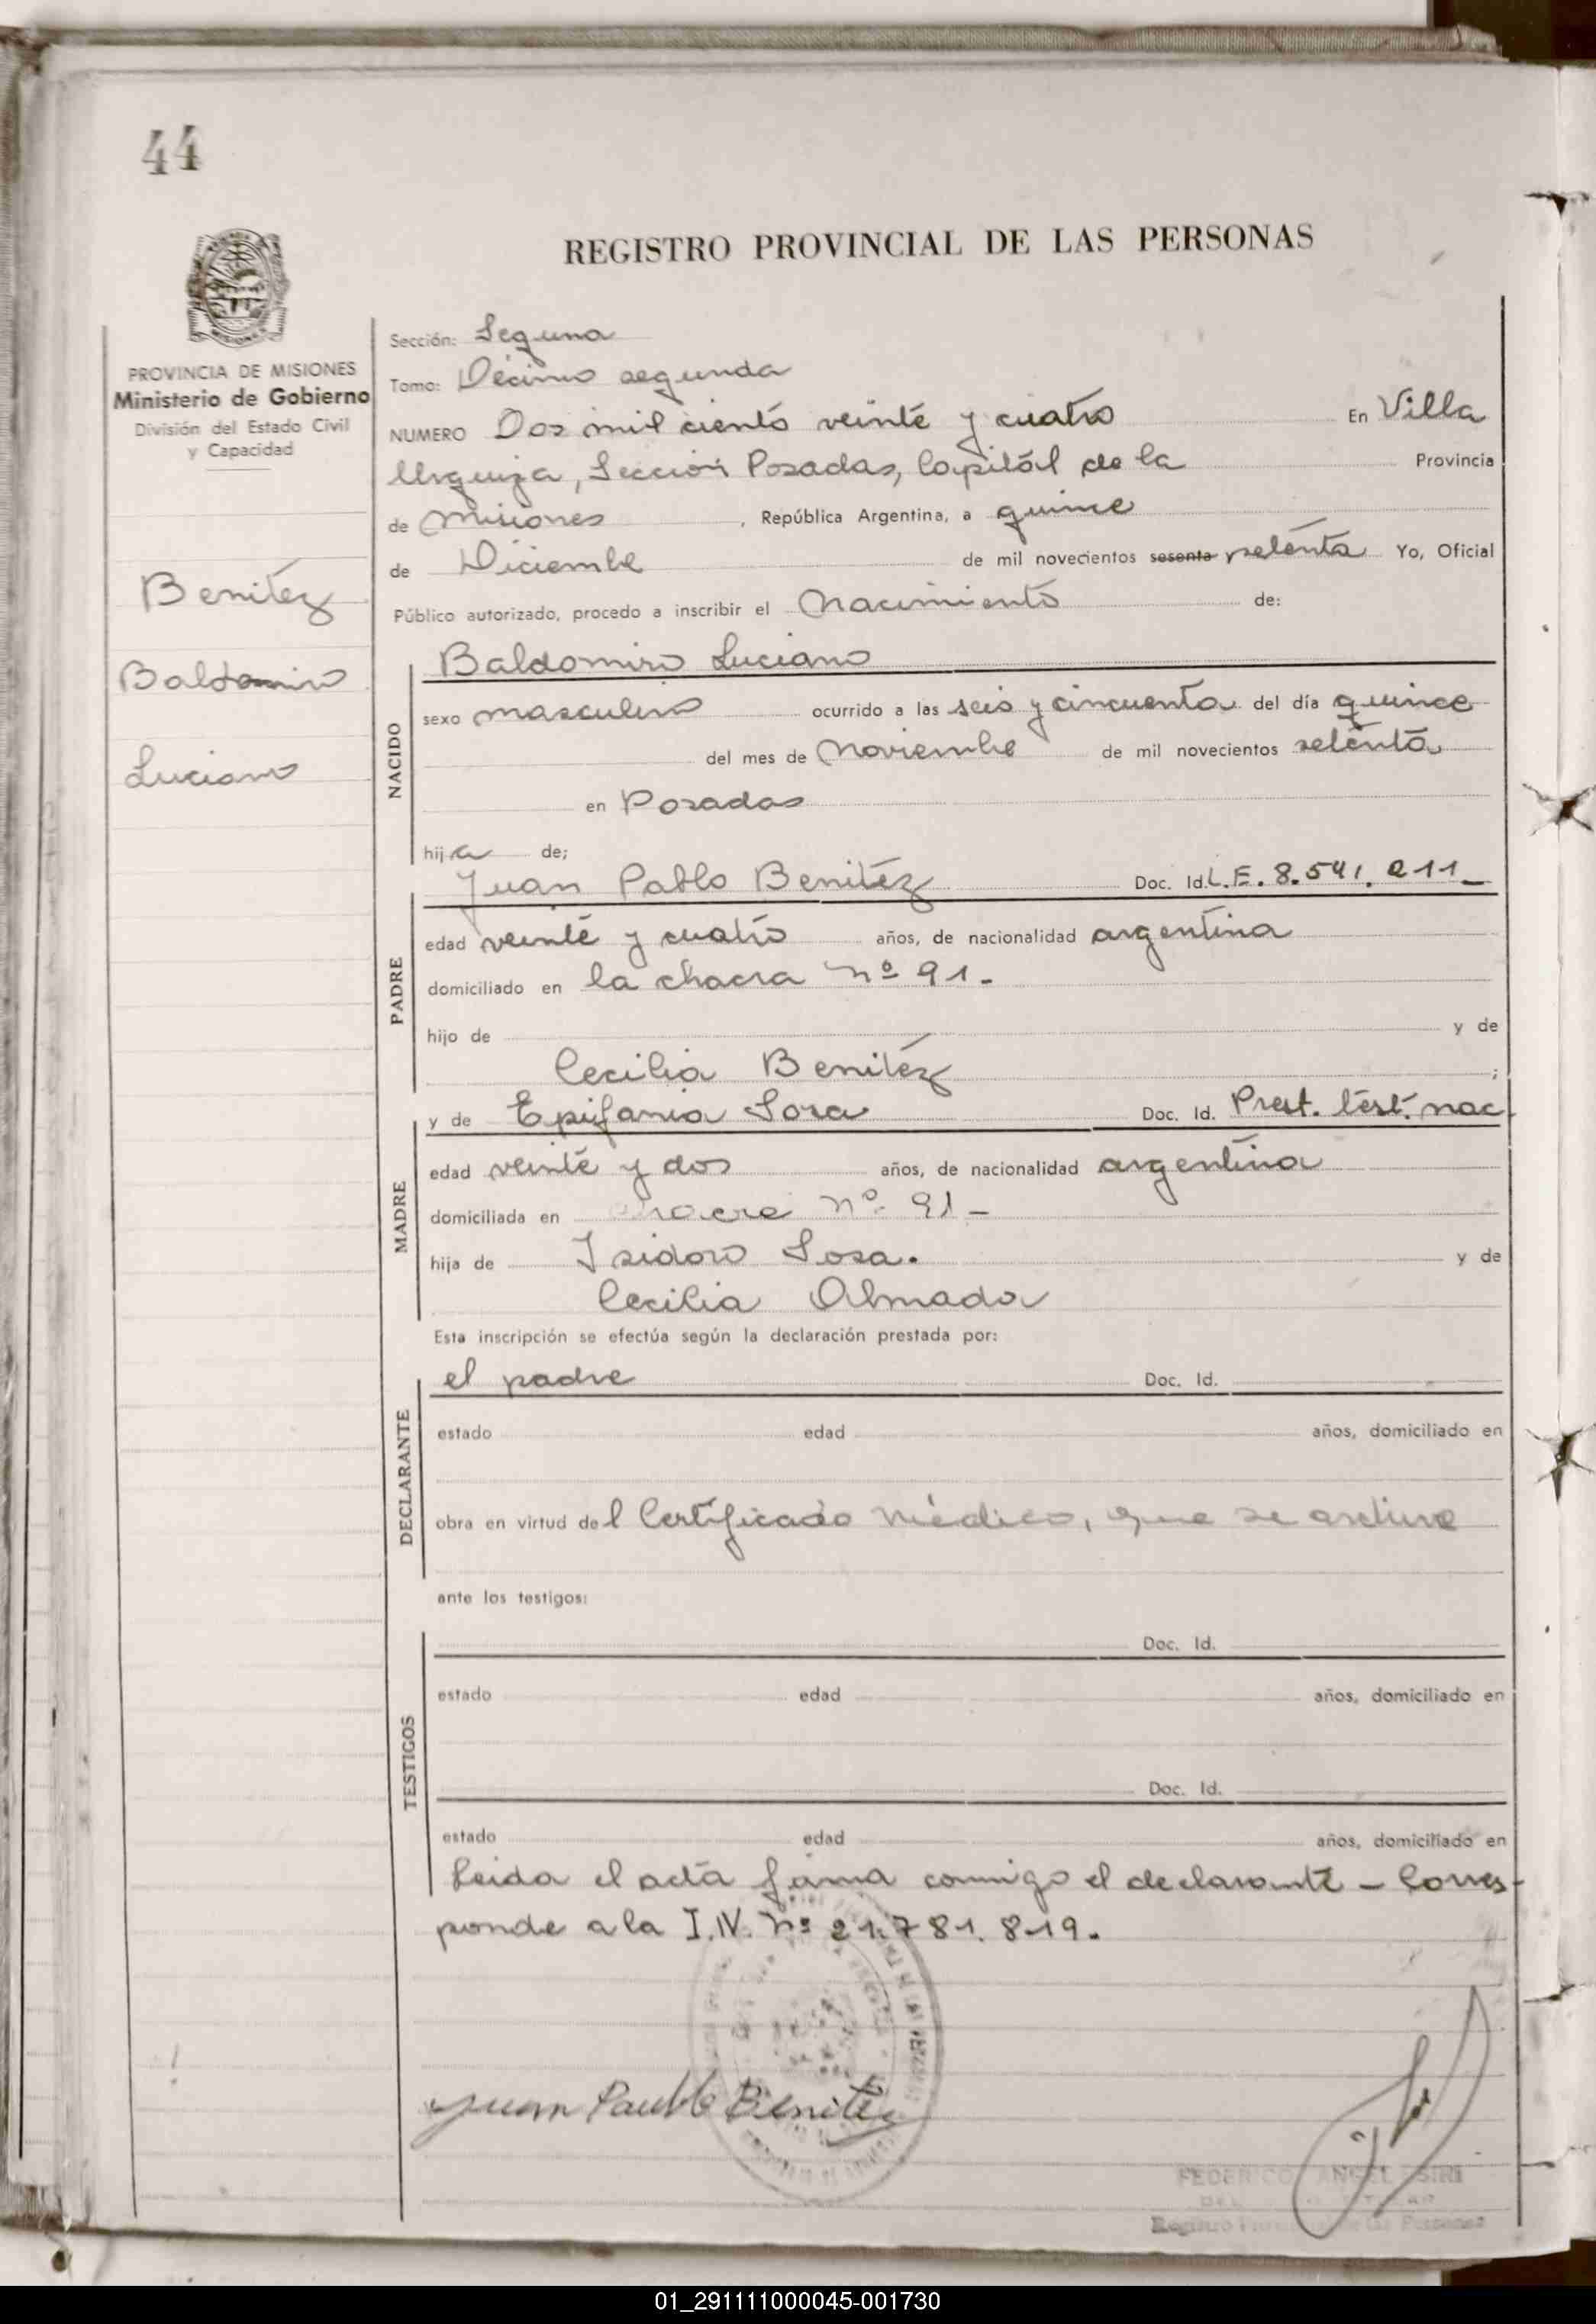 44
REGISTRO PROVINCIAL DE LAS PERSONAS
PROVINCIA DE MISIONES
Ministerio de Gobierno
División del Estado Civil
y Capacidad
Benítez
Baldomiro
Luciano
Sección: Seguna
Tomo: Décimo segunda
NUMERO Dos mil ciento veinte y cuatro En Villa
Urquiza, Sección Posadas, Capital de la Provincia
de Misiones, República Argentina, a quince
de Diciembre de mil novecientos sesenta setenta Yo, Oficial
Público autorizado, procedo a inscribir el Nacimiento de:
NACIDO
Baldomiro Luciano
sexo masculino ocurrido a las seis y cincuenta del día quince
del mes de Noviembre de mil novecientos setenta
en Posadas
hija de;
PADRE
Juan Pablo Benítez Doc. Id. L.E. 8.541.211_
edad veinte y cuatro años, de nacionalidad argentina
domiciliado en la chacra nº 91.-
hijo de y de
Cecilia Benítez ;
MADRE
y de Epifania Sosa Doc. Id. Prest. test. nac.
edad veinte y dos años, de nacionalidad argentina
domiciliada en chacra nº 91-
hija de Isidoro Sosa. y de
Cecilia Almada
Esta inscripción se efectúa según la declaración prestada por:
DECLARANTE
el padre Doc. Id.
estado edad años, domiciliado en
obra en virtud del Certificado médico, que se archiva
ante los testigos:
TESTIGOS
Doc. Id.
estado edad años, domiciliado en
Doc. Id.
estado edad años, domiciliado en
Leida el acta firma conmigo el declarante - Corres-
ponde a la I.N. nº 21.781.819.
Juan Paublo Benitez
FEDERICO ANGEL SIRI
Registro Provincial de las Personas
01_291111000045-001730